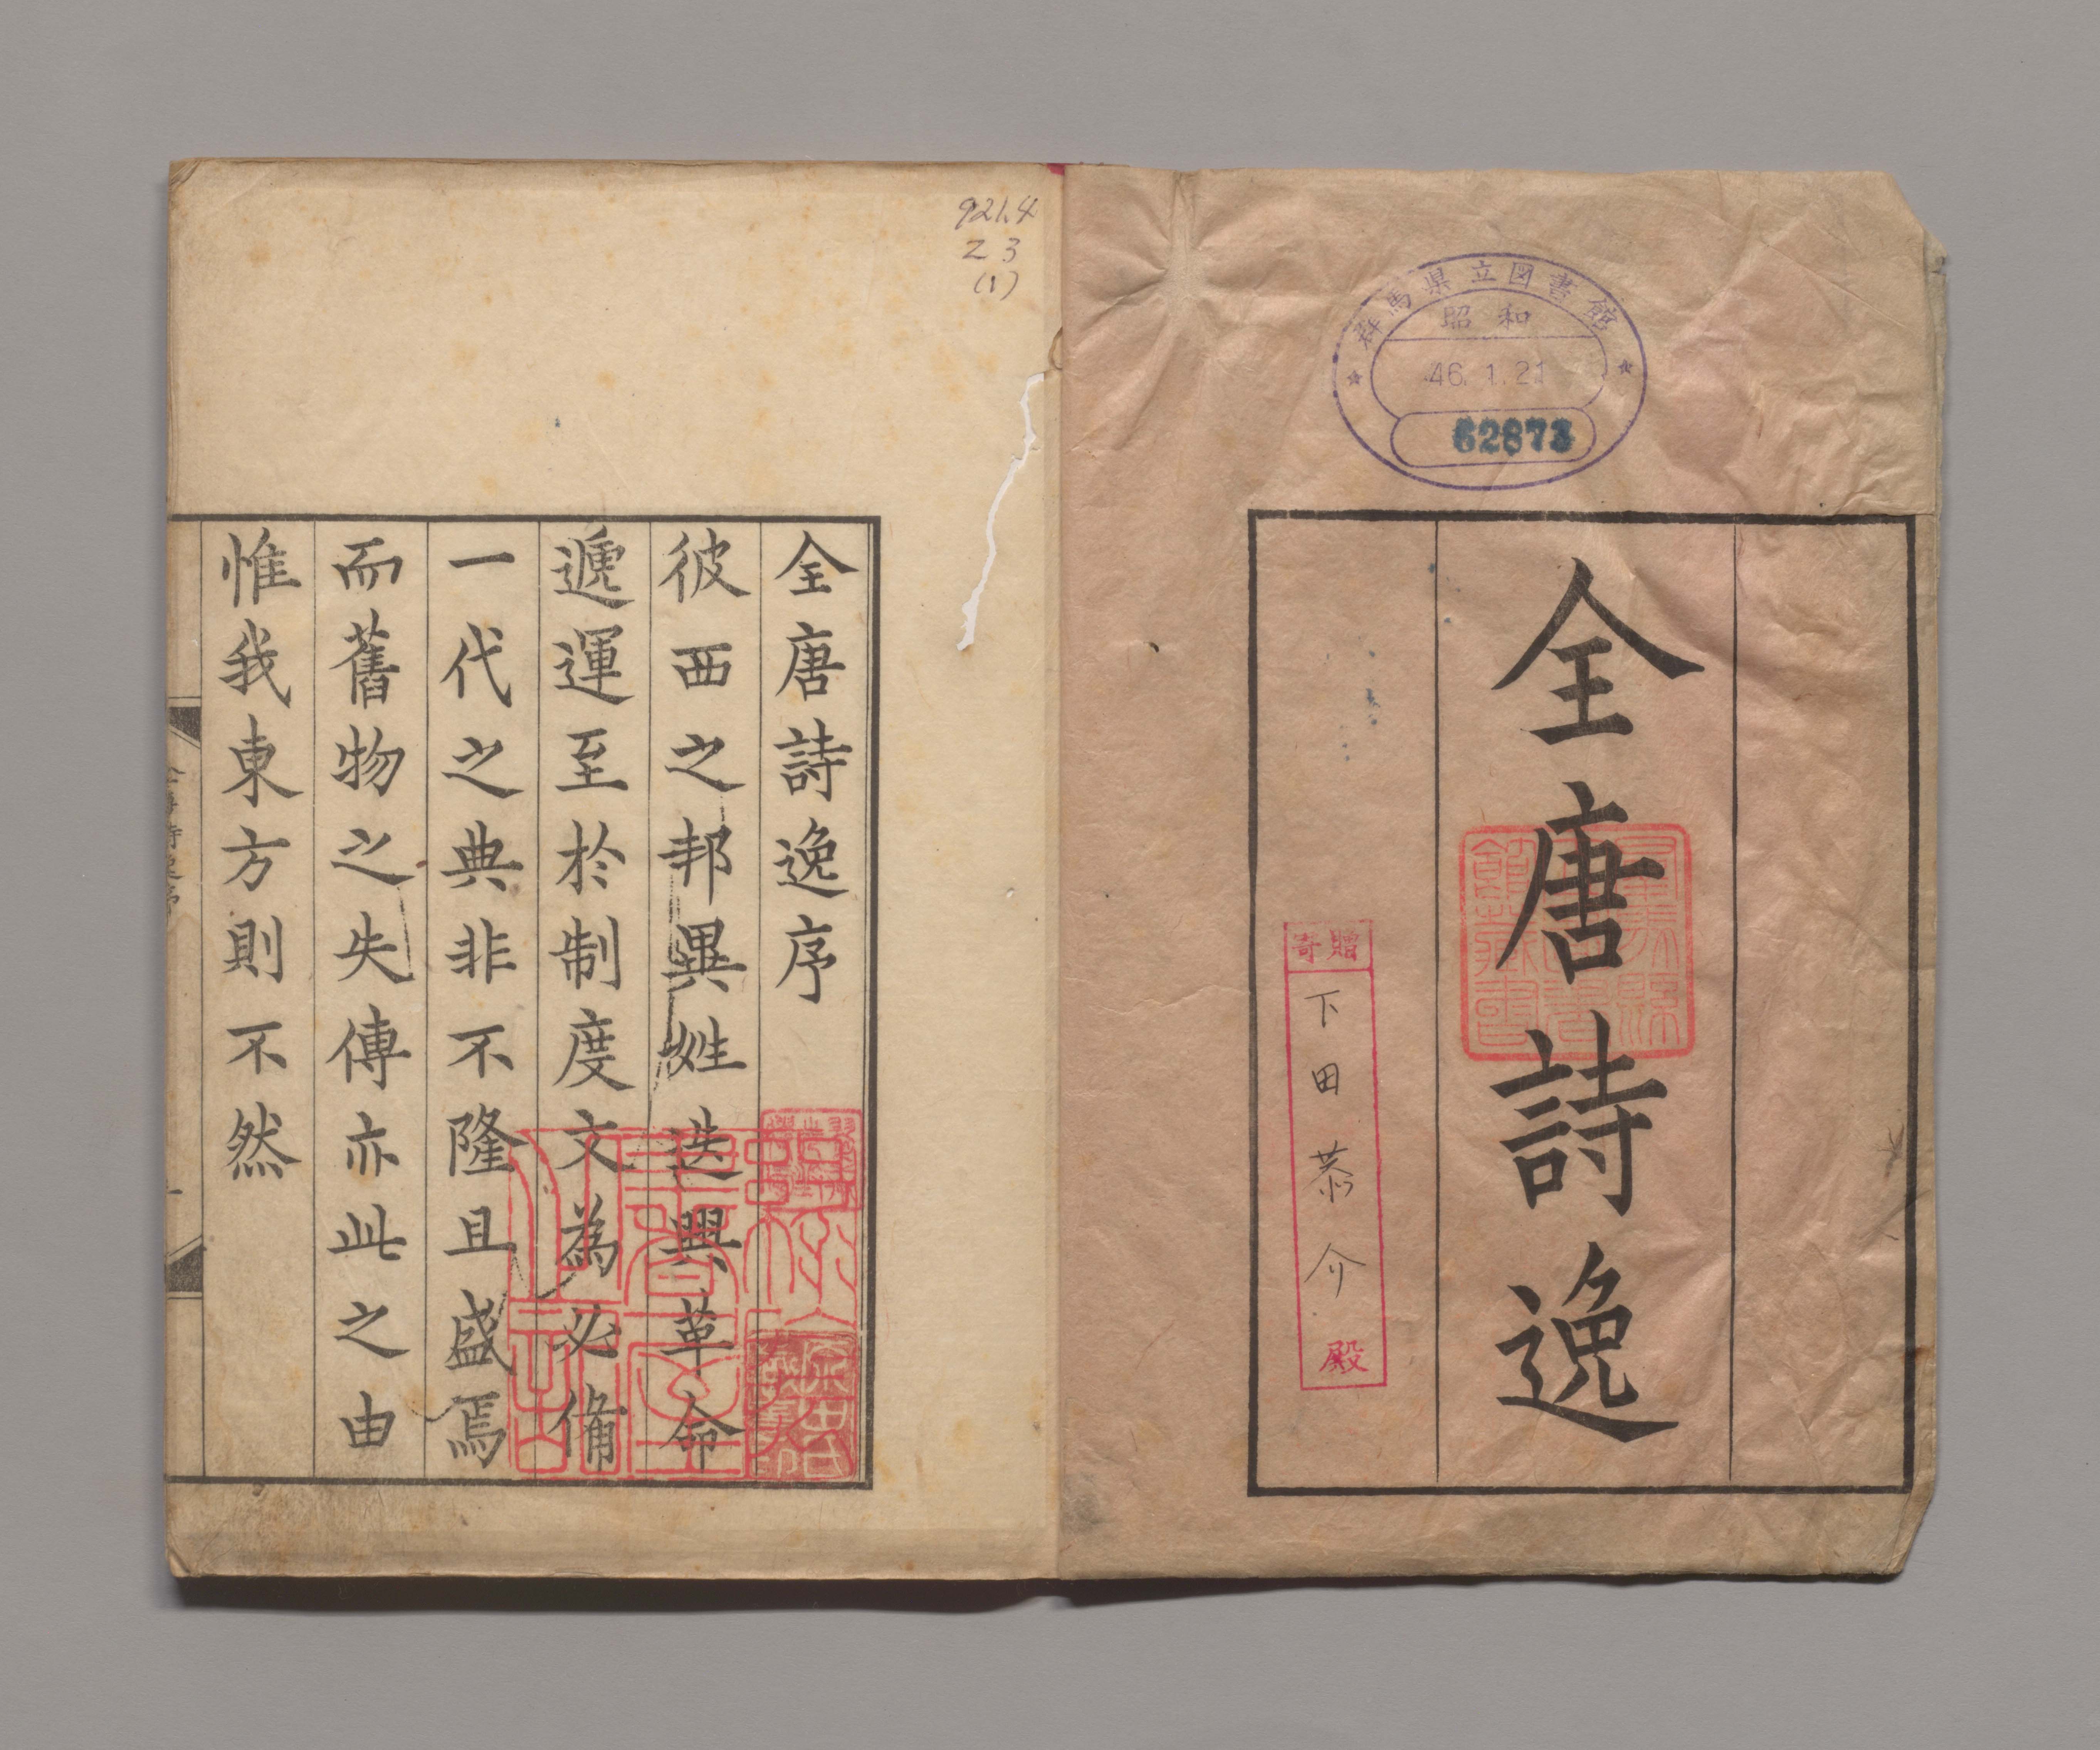 群馬県立図書館
昭和
46.1.21
62873
全唐詩逸
寄贈
下田恭介
殿
921.4
Z3
(1)
全唐詩逸序
彼西之邦異姓迭興革命
遞運至於制度文為必備
一代之典非不隆且盛焉
而舊物之失傳亦此之由
惟我東方則不然